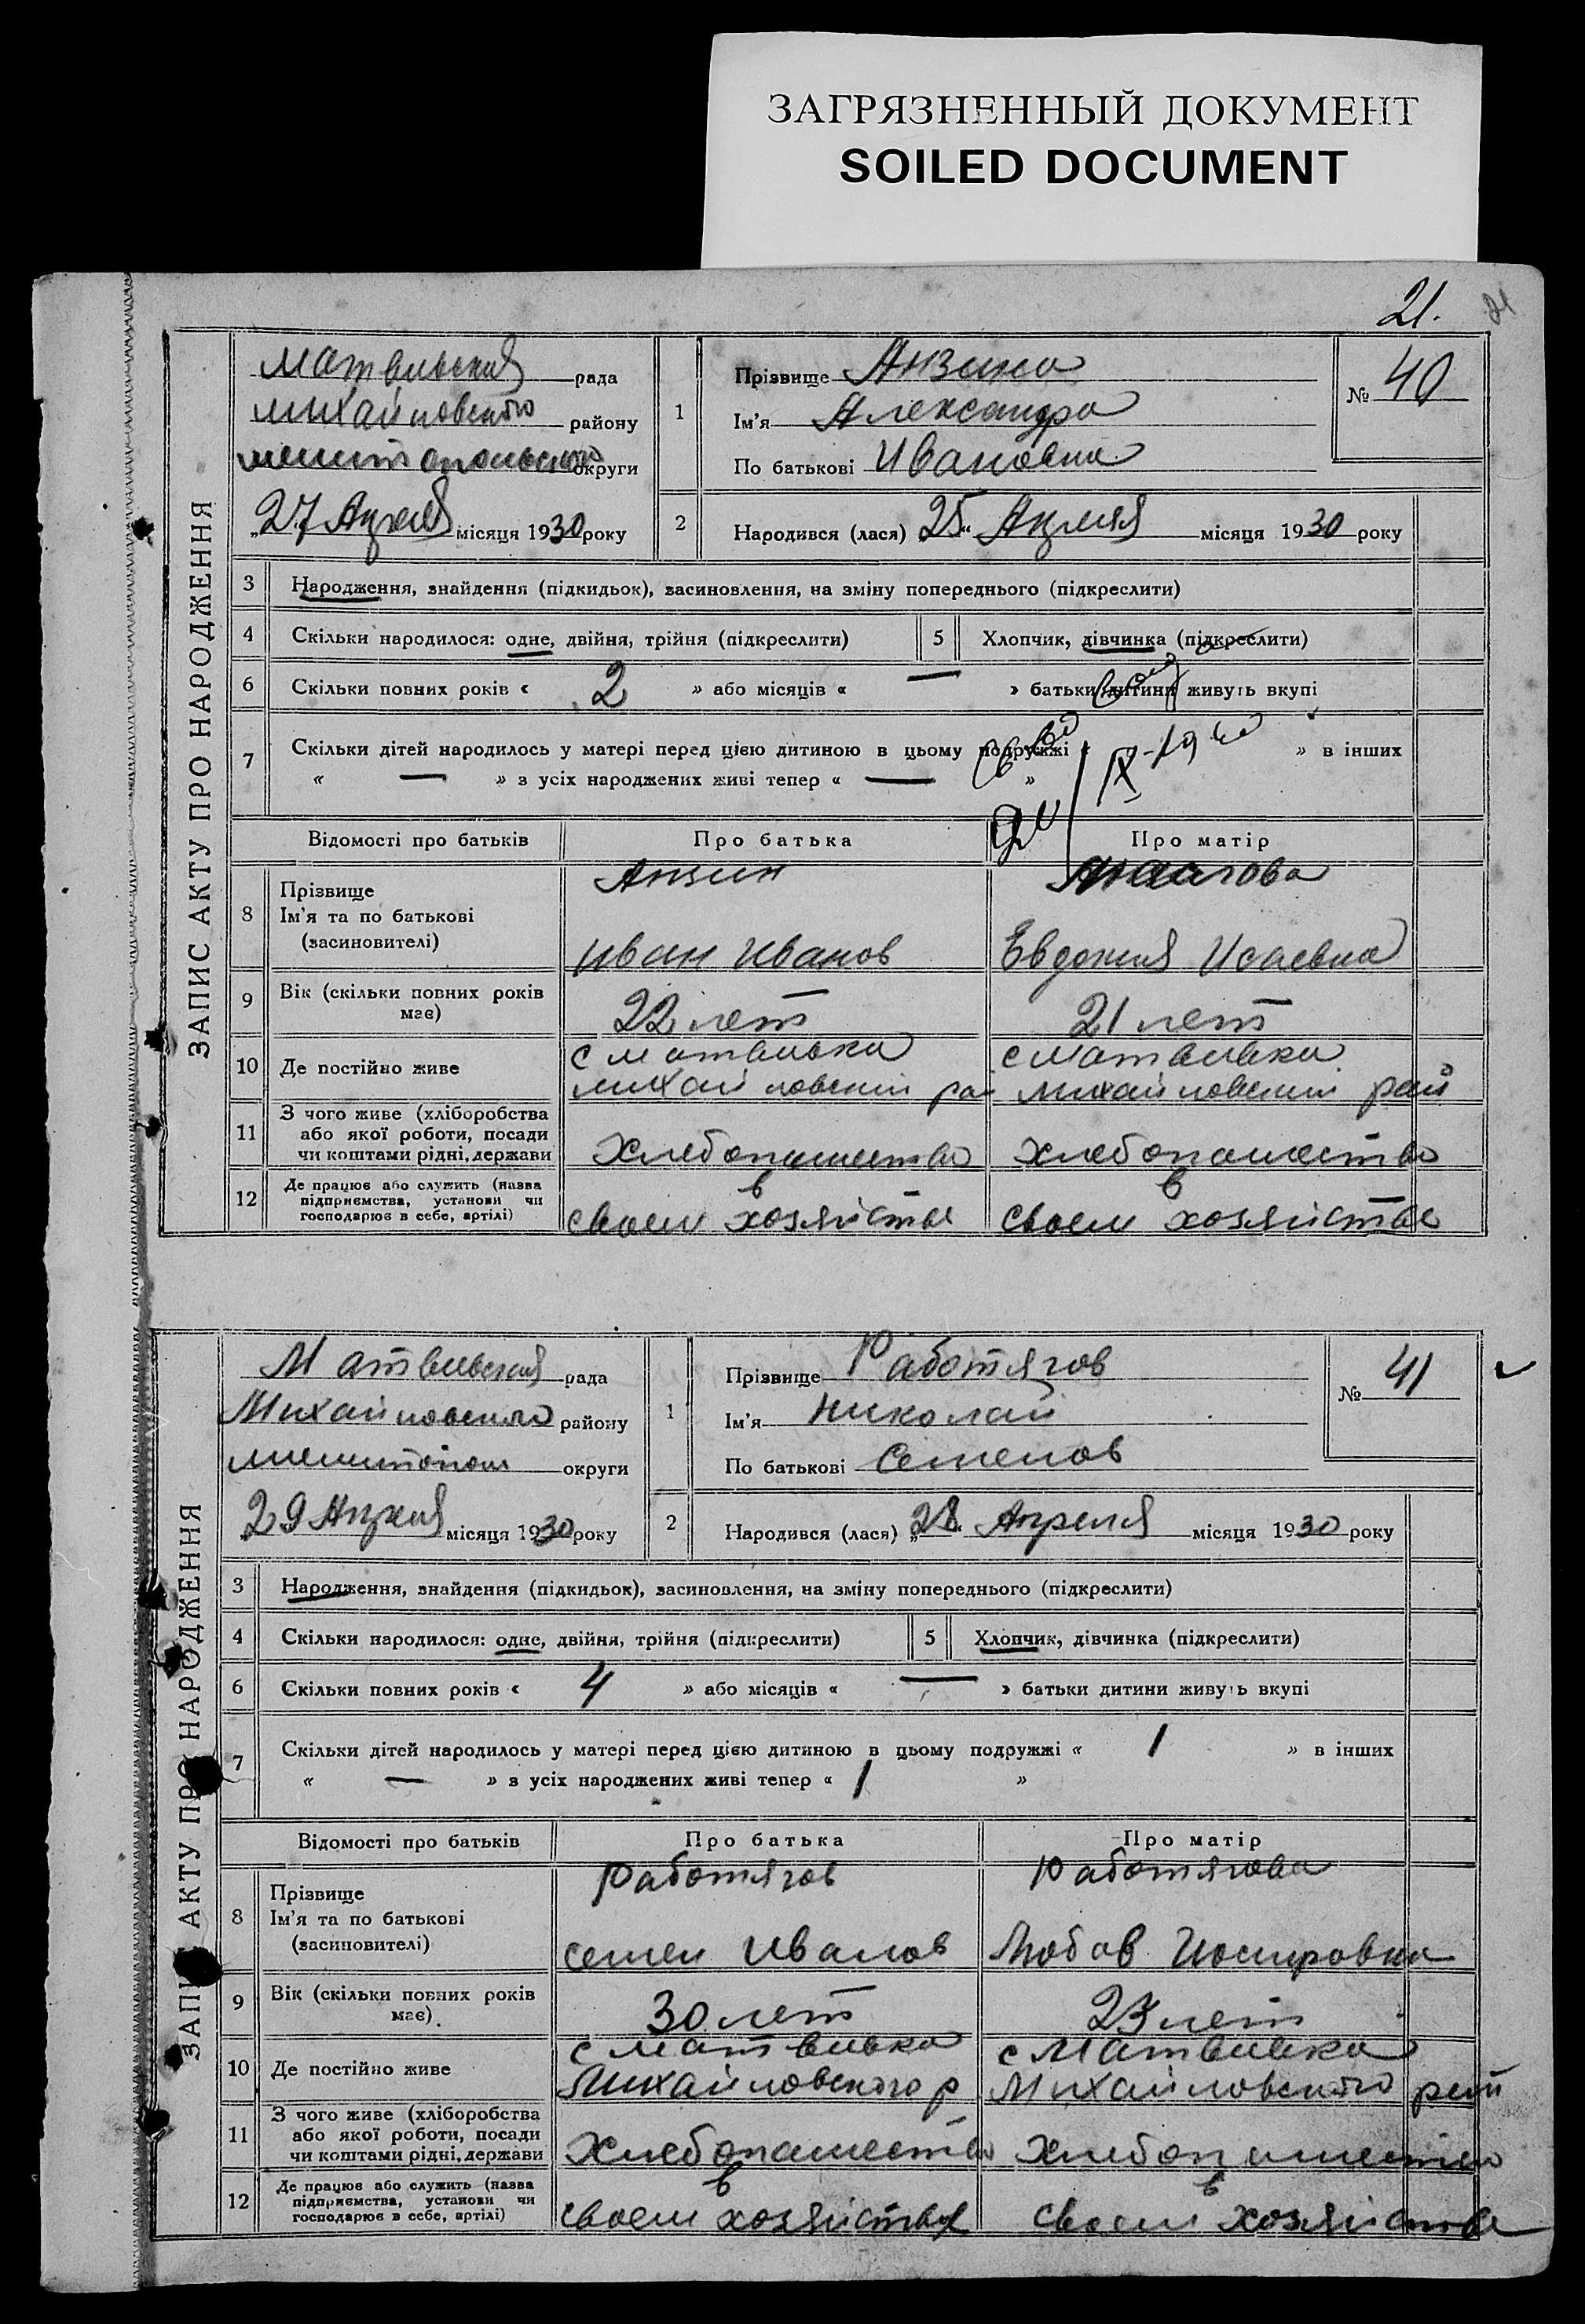 ЗАГРЯЗНЕННЫЙ ДОКУМЕНТ
SOILED DOCUMENT
21.
21
ЗАПИС АКТУ ПРО НАРОДЖЕННЯ
Матвивский рада
Михайловского району
Мелитопольского округи
„27 Апреля місяця 1930 року
1 Прізвище Анзина
Ім'я Александра
По батькові Ивановна
№ 40
2 Народився (лася) 25 „ Апреля місяця 1930 року
3 Народження, знайдення (підкидьок), засиновлення, на зміну попереднього (підкреслити)
4 Скільки народилося: одне, двійня, трійня (підкреслити) 5 Хлопчик, дівчинка (підкреслити)
6 Скільки повних років « 2 » або місяців « — » батьки дитини живуть вкупі
7 Скільки дітей народилось у матері перед цією дитиною в цьому подружжі « » в інших
« — » з усіх народжених живі тепер « — »
Відомості про батьків Про батька Про матір
8 Прізвище
Ім'я та по батькові
(засиновителі)
Анзин
Иван Иванов
Евдокия Исаевна
9 Вік (скільки повних років
має)
22 лет 21 лет
10 Де постійно живе
с Матвивка
Михайловский ра
с Матвивка
Михайловский рай
11 З чого живе (хліборобства
або якої роботи, посади
чи коштами рідні, держави
Хлебопашество Хлебопашество
12 Де працює або служить (назва
підприємства, установи чи
господарює в себе, артілі)
в
своем хозяйстве
в
своем хозяйстве
ЗАПИС АКТУ ПРО НАРОДЖЕННЯ
Матвивский рада
Михайловского району
Мелитопол округи
29 Апреля місяця 1930 року
1 Прізвище Работягов
Ім'я Николай
По батькові Семенов
№ 41
2 Народився (лася) „28 Апреля місяця 1930 року
3 Народження, знайдення (підкидьок), засиновлення, на зміну попереднього (підкреслити)
4 Скільки народилося: одне, двійня, трійня (підкреслити) 5 Хлопчик, дівчинка (підкреслити)
6 Скільки повних років « 4 » або місяців « — » батьки дитини живуть вкупі
7 Скільки дітей народилось у матері перед цією дитиною в цьому подружжі « 1 » в інших
« — » з усіх народжених живі тепер « 1 »
Відомості про батьків Про батька Про матір
8 Прізвище
Ім'я та по батькові
(засиновителі)
Работягов
Семен Иванов
Работягова
Любов
9 Вік (скільки повних років
має).
30 лет 23 лет
10 Де постійно живе
с Матвивка
Михайловского р
с Матвивка
Михайловского рай
11 З чого живе (хліборобства
або якої роботи, посади
чи коштами рідні, держави
Хлебопашество Хлебопашество
12 Де працює або служить (назва
підприємства, установи чи
господарює в себе, артілі)
в
своем хозяйстве
в
своем хозяйстве